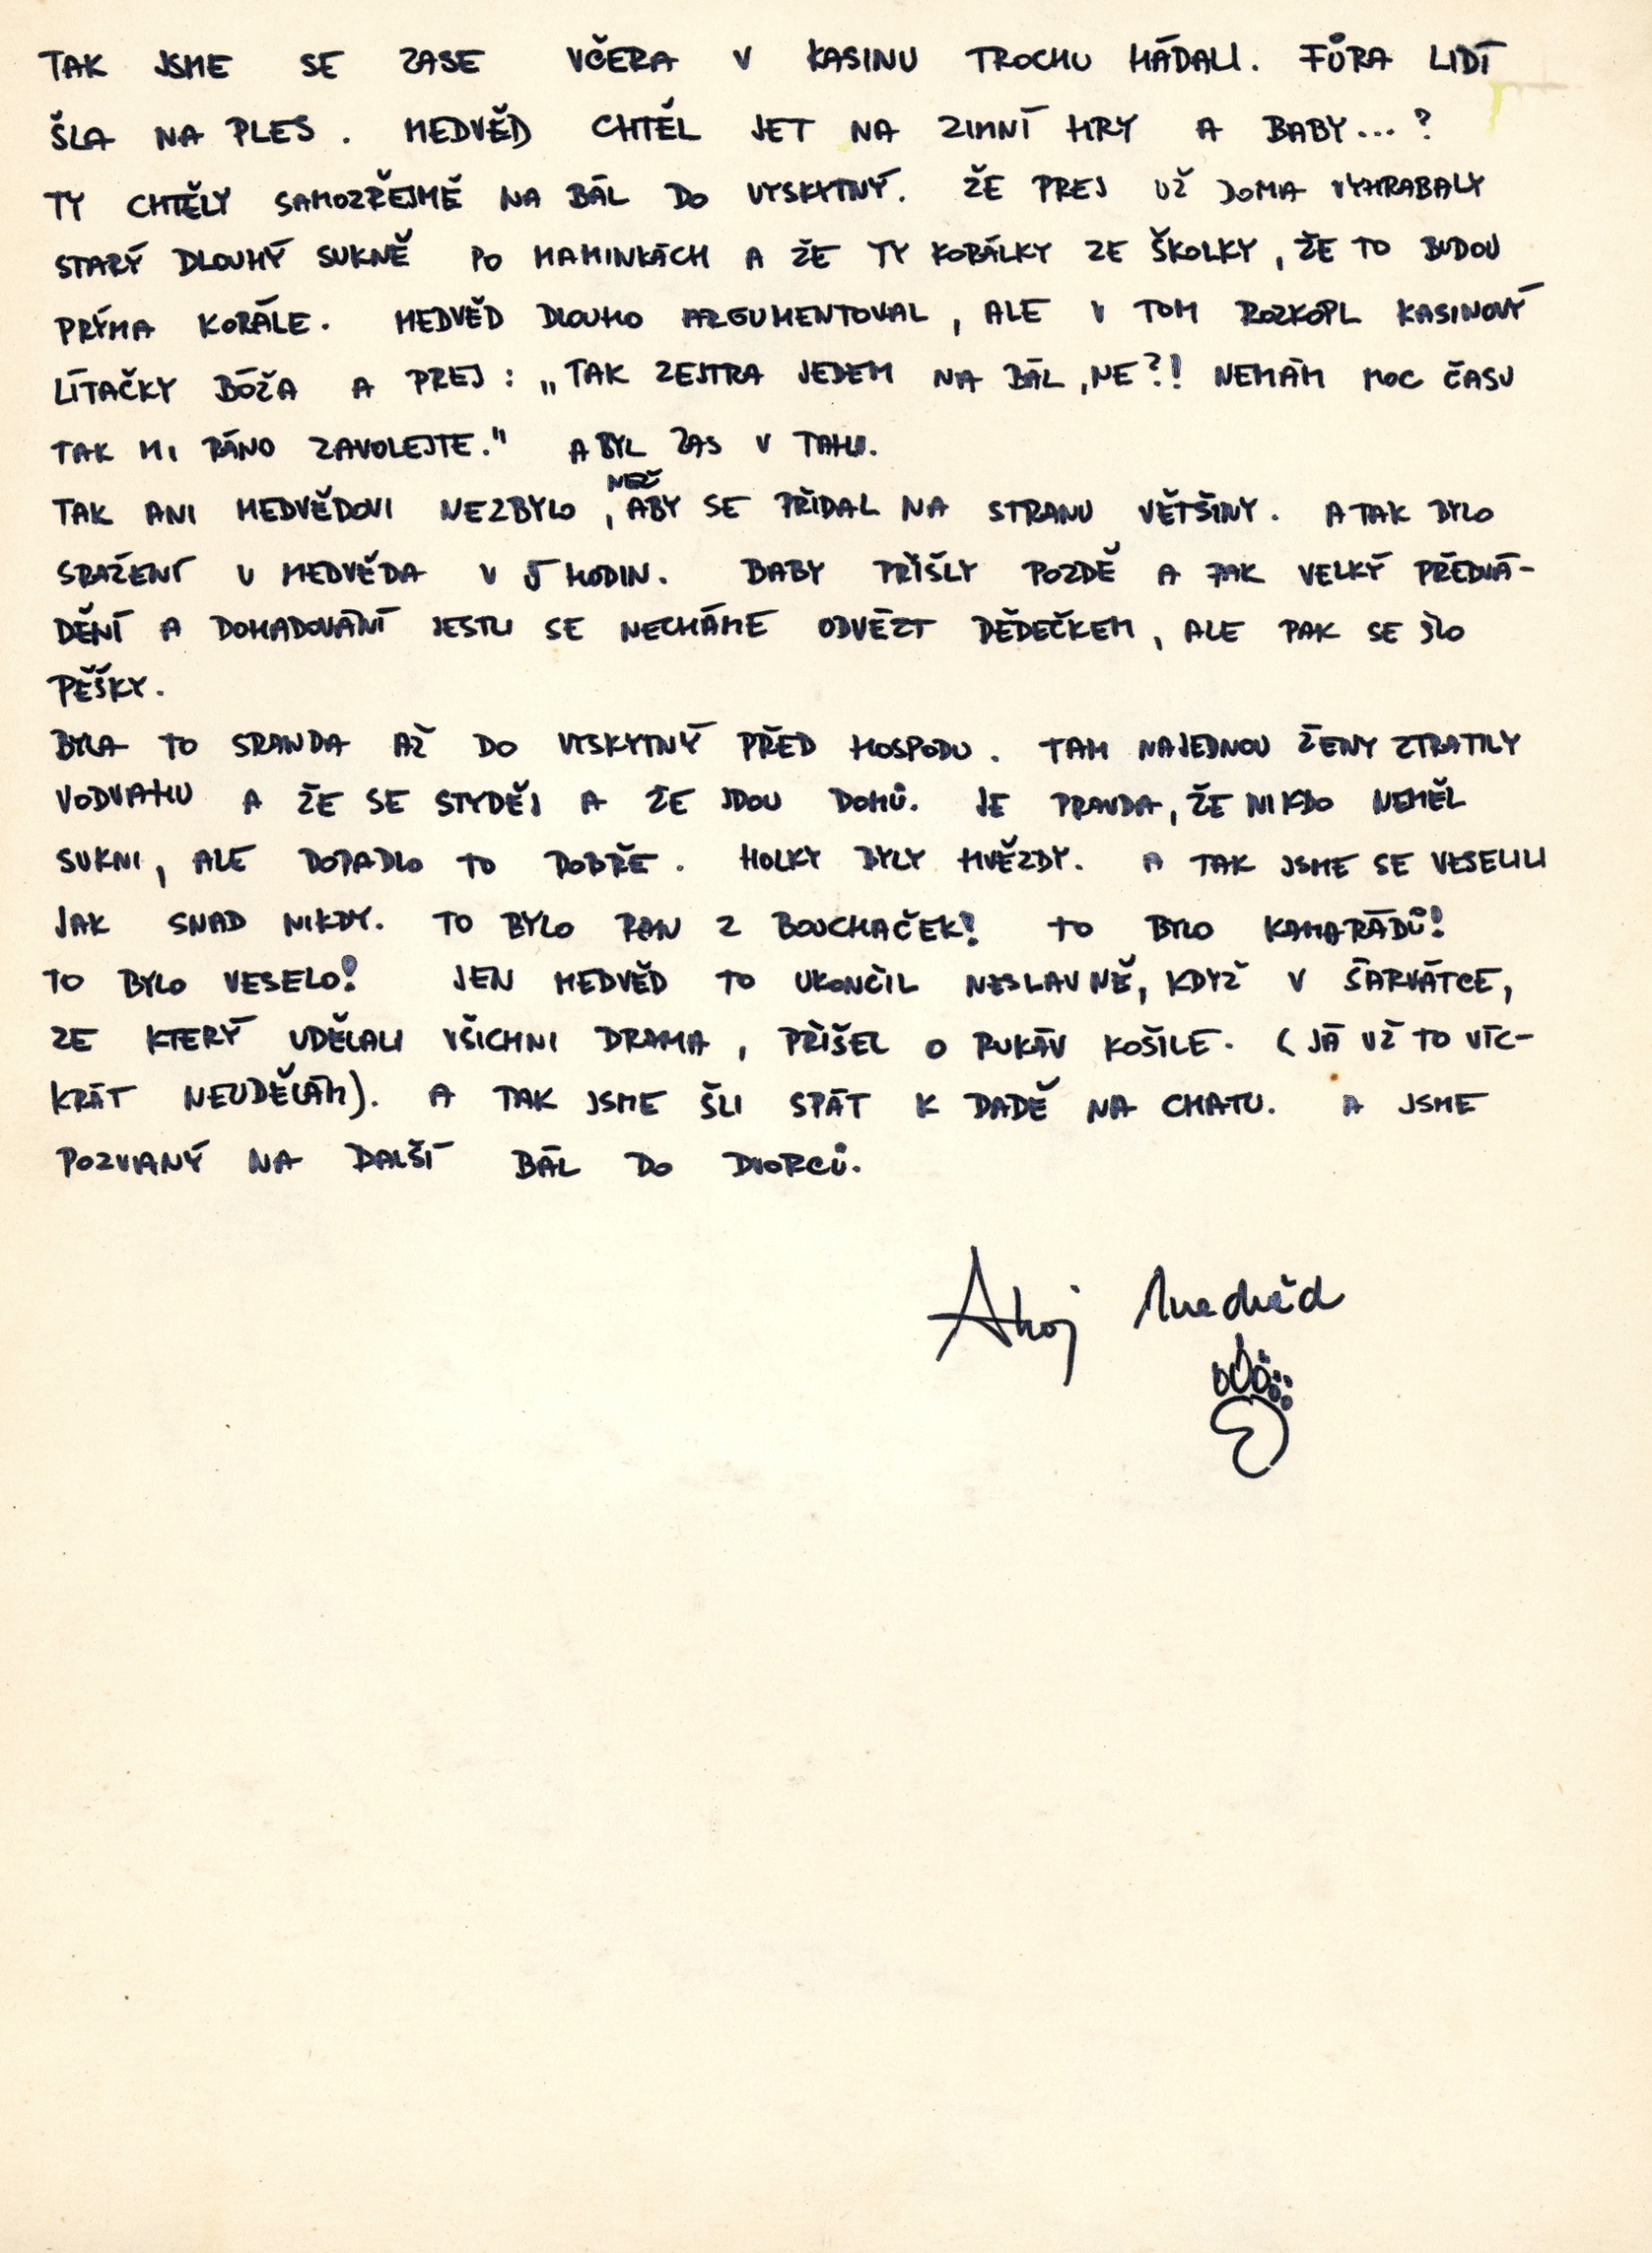 TAK JSME SE ZASE VČERA V KASINU TROCHU HÁDALI. FŮRA LIDÍ
ŠLA NA PLES. MEDVĚD CHTĚL JET NA ZIMNÍ HRY A BABY...?
TY CHTĚLY SAMOZŘEJMĚ NA BÁL DO VYSKYTNÝ. ŽE PREJ UŽ DOMA VYHRABALY
STARÝ DLOUHÝ SUKNĚ PO MAMINKÁCH A ŽE TY KORÁLKY ZE ŠKOLKY, ŽE TO BUDOU
PRÝMA KORÁLE. MEDVĚD DLOUHO ARGUMENTOVAL, ALE V TOM ROZKOPL KASINOVÝ
LÍTAČKY BÓŽA A PREJ: „TAK ZEJTRA JEDEM NA BÁL, NE?! NEMÁM MOC ČASU
TAK MI RÁNO ZAVOLEJTE." A BYL ZAS V TAHU.
TAK ANI MEDVĚDOVI NEZBYLO, NEŽ ABY SE PŘIDAL NA STRANU VĚTŠINY. A TAK BYLO
SRAŽENÍ U MEDVĚDA V 5 HODIN. BABY PŘIŠLY POZDĚ A PAK VELKÝ PŘEDVÁ-
DĚNÍ A DOHADOVÁNÍ JESTLI SE NECHÁME ODVÉZT DĚDEČKEM, ALE PAK SE ŠLO
PĚŠKY.
BYLA TO SRANDA AŽ DO VYSKYTNÝ PŘED HOSPODU. TAM NAJEDNOU ŽENY ZTRATILY
VODVAHU A ŽE SE STYDĚJ A ŽE JDOU DOMŮ. JE PRAVDA, ŽE NIKDO NEMĚL
SUKNI, ALE DOPADLO TO DOBŘE. HOLKY BYLY HVĚZDY. A TAK JSME SE VESELILI
JAK SNAD NIKDY. TO BYLO RAN Z BOUCHAČEK! TO BYLO KAMARÁDŮ!
TO BYLO VESELO! JEN MEDVĚD TO UKONČIL NESLAVNĚ, KDYŽ V ŠARVÁTCE,
ZE KTERÝ UDĚLALI VŠICHNI DRAMA, PŘIŠEL O RUKÁV KOŠILE. (JÁ UŽ TO VÍC-
KRÁT NEUDĚLÁM). A TAK JSME ŠLI SPÁT K DADĚ NA CHATU. A JSME
POZVANÝ NA DALŠÍ BÁL DO DVORCŮ.
Ahoj Medvěd